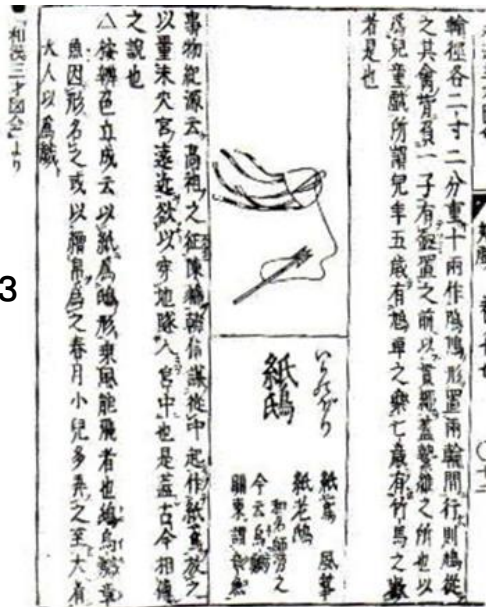 輪徑各二寸二分重十兩作鳩形置兩輪間行則鳩從
之其禽背負一子有置之前以貫羅蓋繫雛之所也以
爲兒童戲所謂兒年五歳有鳩車之樂七歳有竹馬之歡
若是也
いかのぼり
紙鴟
紙鳶 風箏
紙老鴟
今云烏賊
關東謂章魚
事物紀源云高祖之征陳豨韓信謀從中起作紙鳶放之
以量未央宮遠近欲以穿地隧入宮中也是蓋古今相傳
之説也
△按辨色立成云以紙爲鴟形乘風能飛者也烏賊章
魚因形名之或以繒帛爲之春月小兒多弄之至大者
大人以爲戲
●『和漢三才図会』より
3